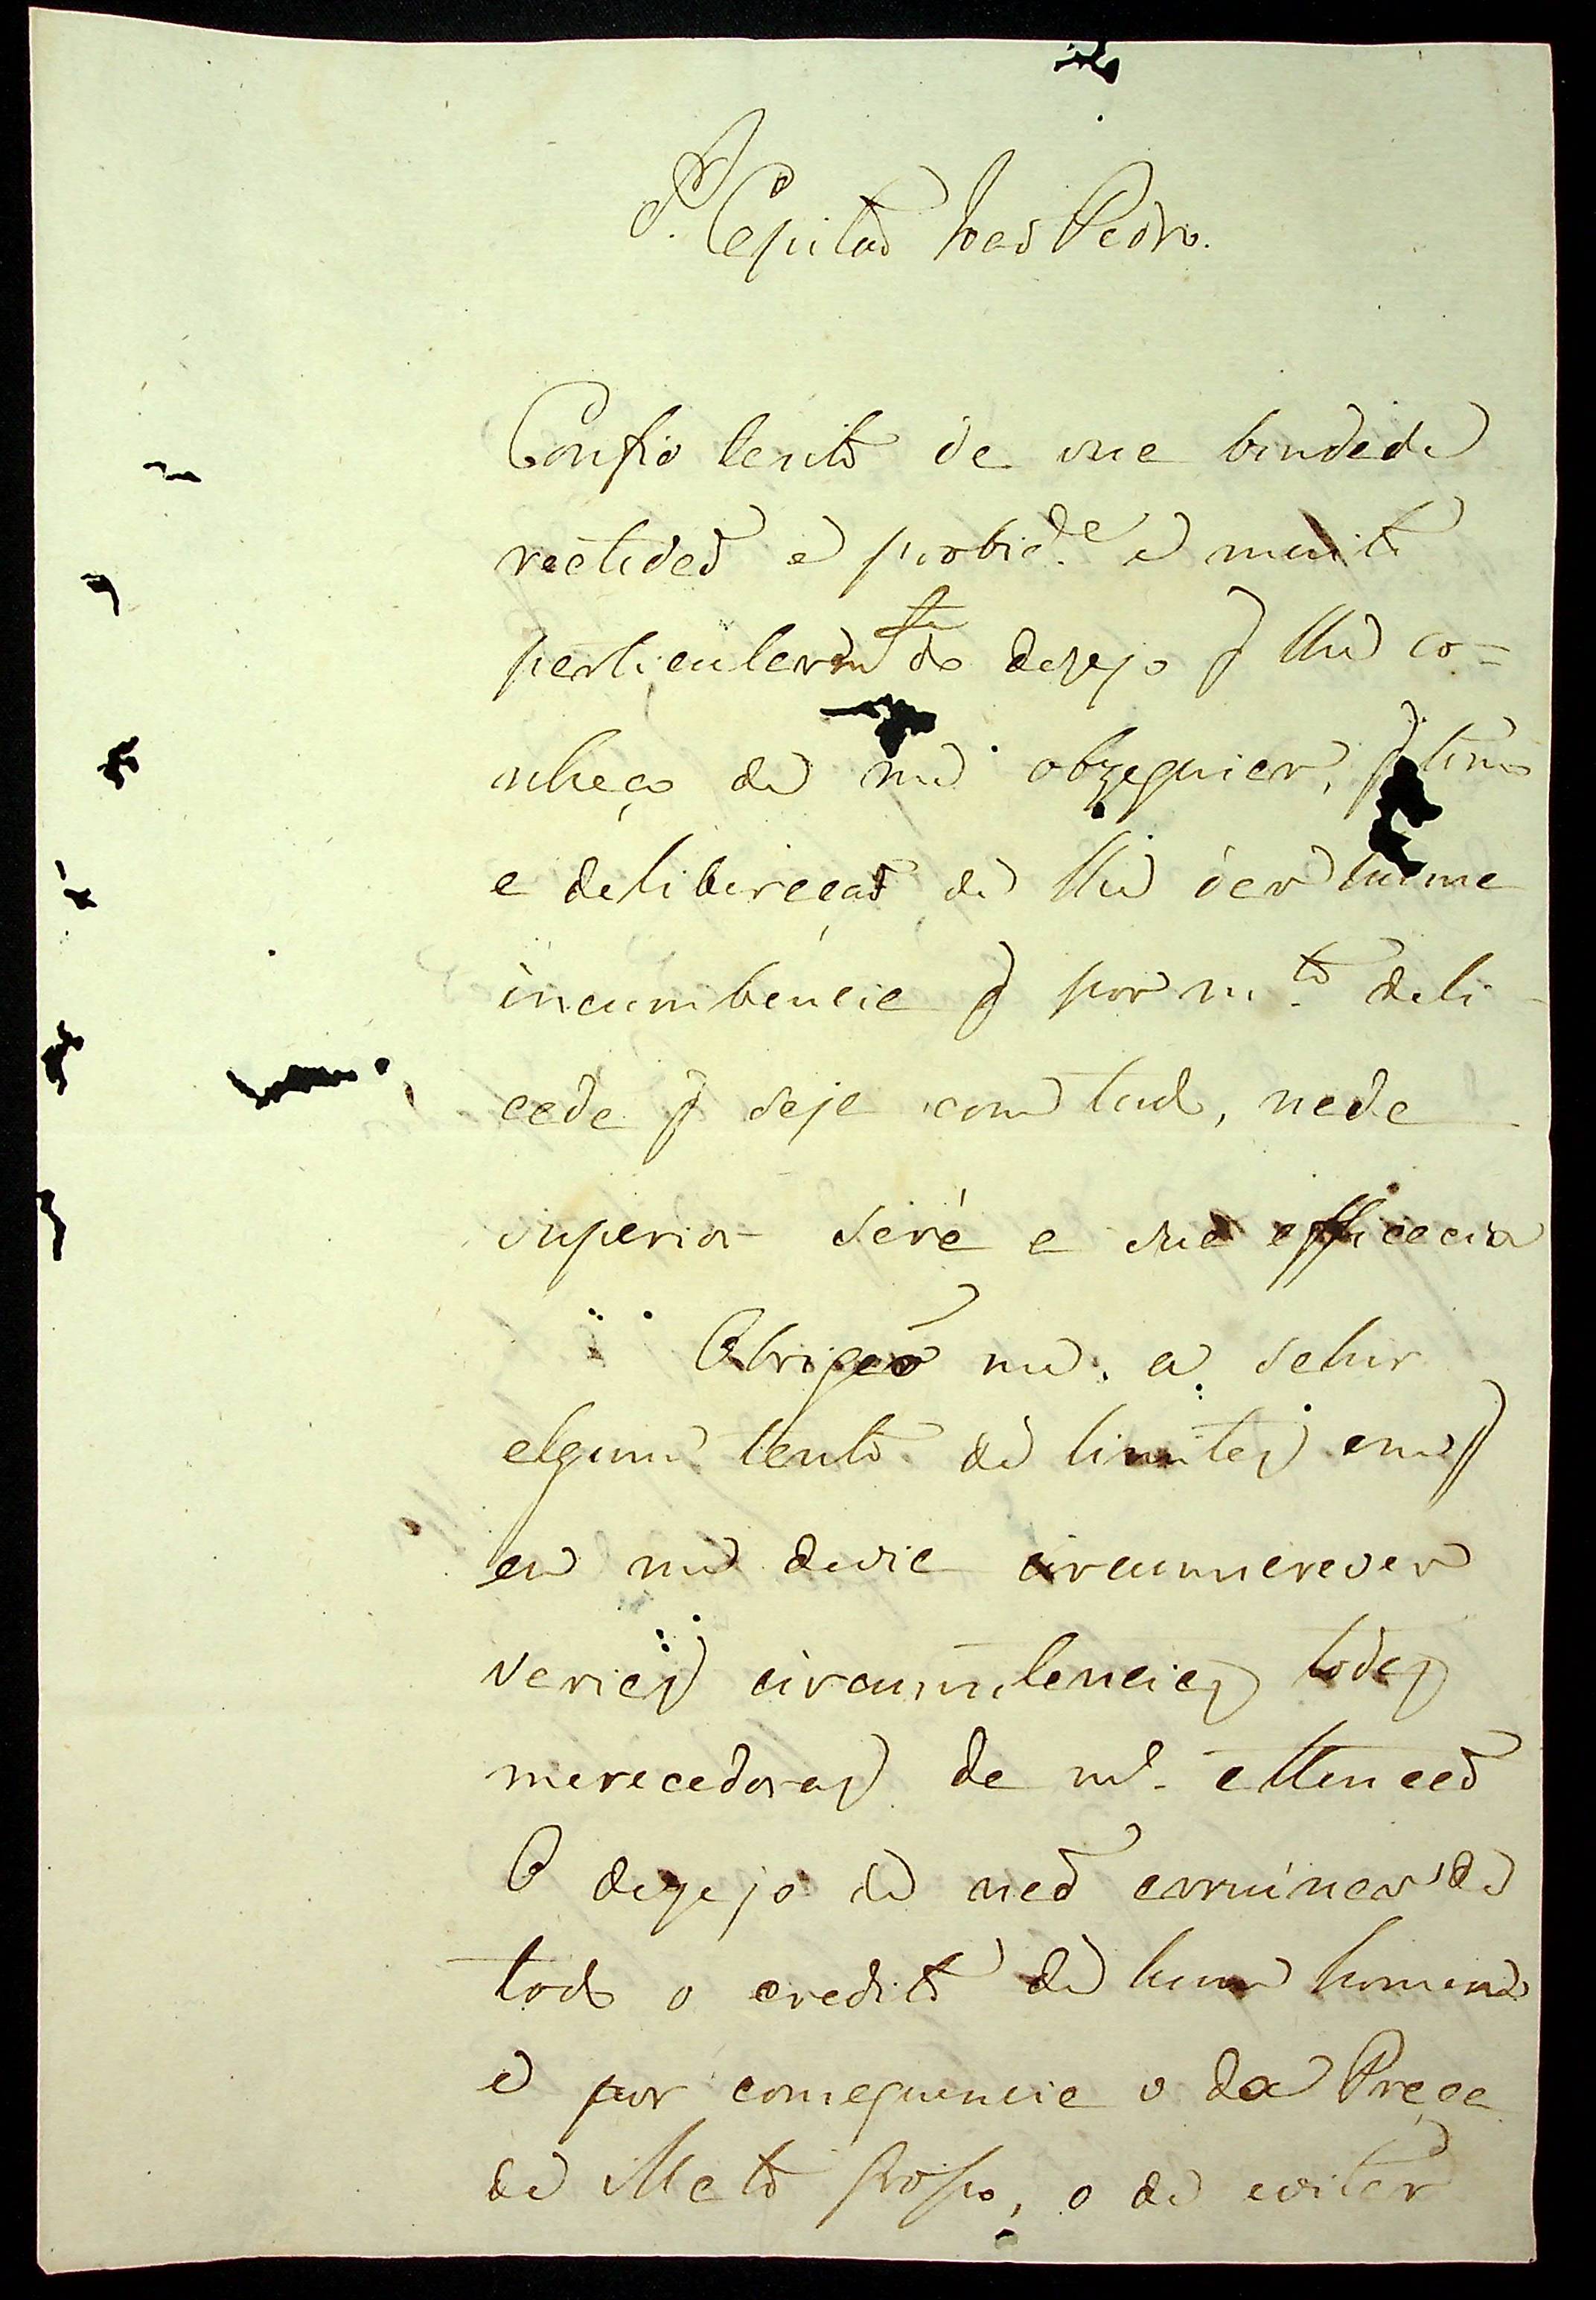 S. Capitaõ Joaõ Pedro.
Confio tanto da sua bondade
rectidaõ e probid.e e muito
particularm.te do dezejo q̃ lhe co=
nheço de me obzequiar, q̃ tomo
a deliberaçaõ de lhe dar huma
incumbencia q̃ por m.to deli-
cada q̃ seja com tudo, nada
superior será a sua efficacia
Obrigaõ me a sahir
algum tanto de limites em q̃
eu me devia circumscrever
varias circumstancias todas
merecedoras de m.a attençaõ
O dezejo de naõ arruinar de
todo o credito de hum homem
e por consequencia o da Praça
de Mato Groſso, o de evitar